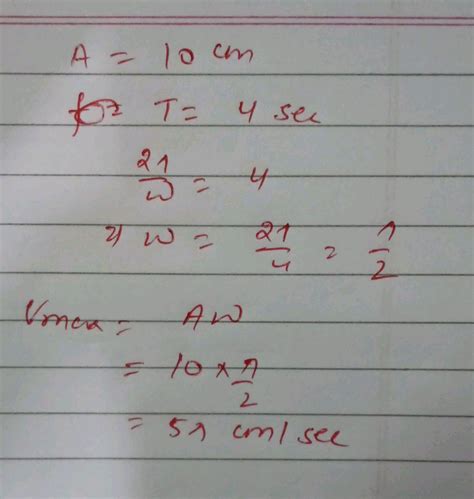 A = 10 cm
T = 4 sec
2π/ω = 4
=> ω = 2π/4 = π/2
Vmax = Aω
= 10 × π/2
= 5π cm/sec